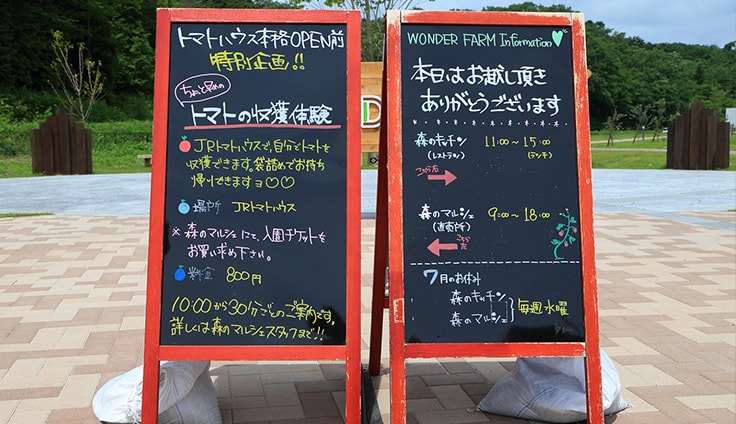 トマトハウス本格OPEN前
特別企画!!
ちょっと早めの
トマトの収獲体験
JRトマトハウスで、自分でトマトを
収獲できます。袋詰めでお持ち
帰りできますョ♡♡
場所 JRトマトハウス
※森のマルシェにて、入園チケットを
お買い求め下さい。
料金 800円
10:00から30分ごとのご案内です。
詳しくは森のマルシェスタッフまで!!
WONDER FARM Information
本日はお越し頂き
ありがとうございます
森のキッチン 11:00～15:00
(レストラン) (ランチ)
こちら
森のマルシェ 9:00～18:00
(直売所)
こちら
7月のお休み
森のキッチン
森のマルシェ
毎週水曜
D